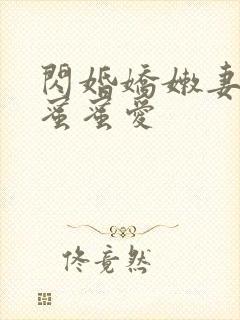 閃婚嬌嫩妻
蜜蜜愛
佟竟然